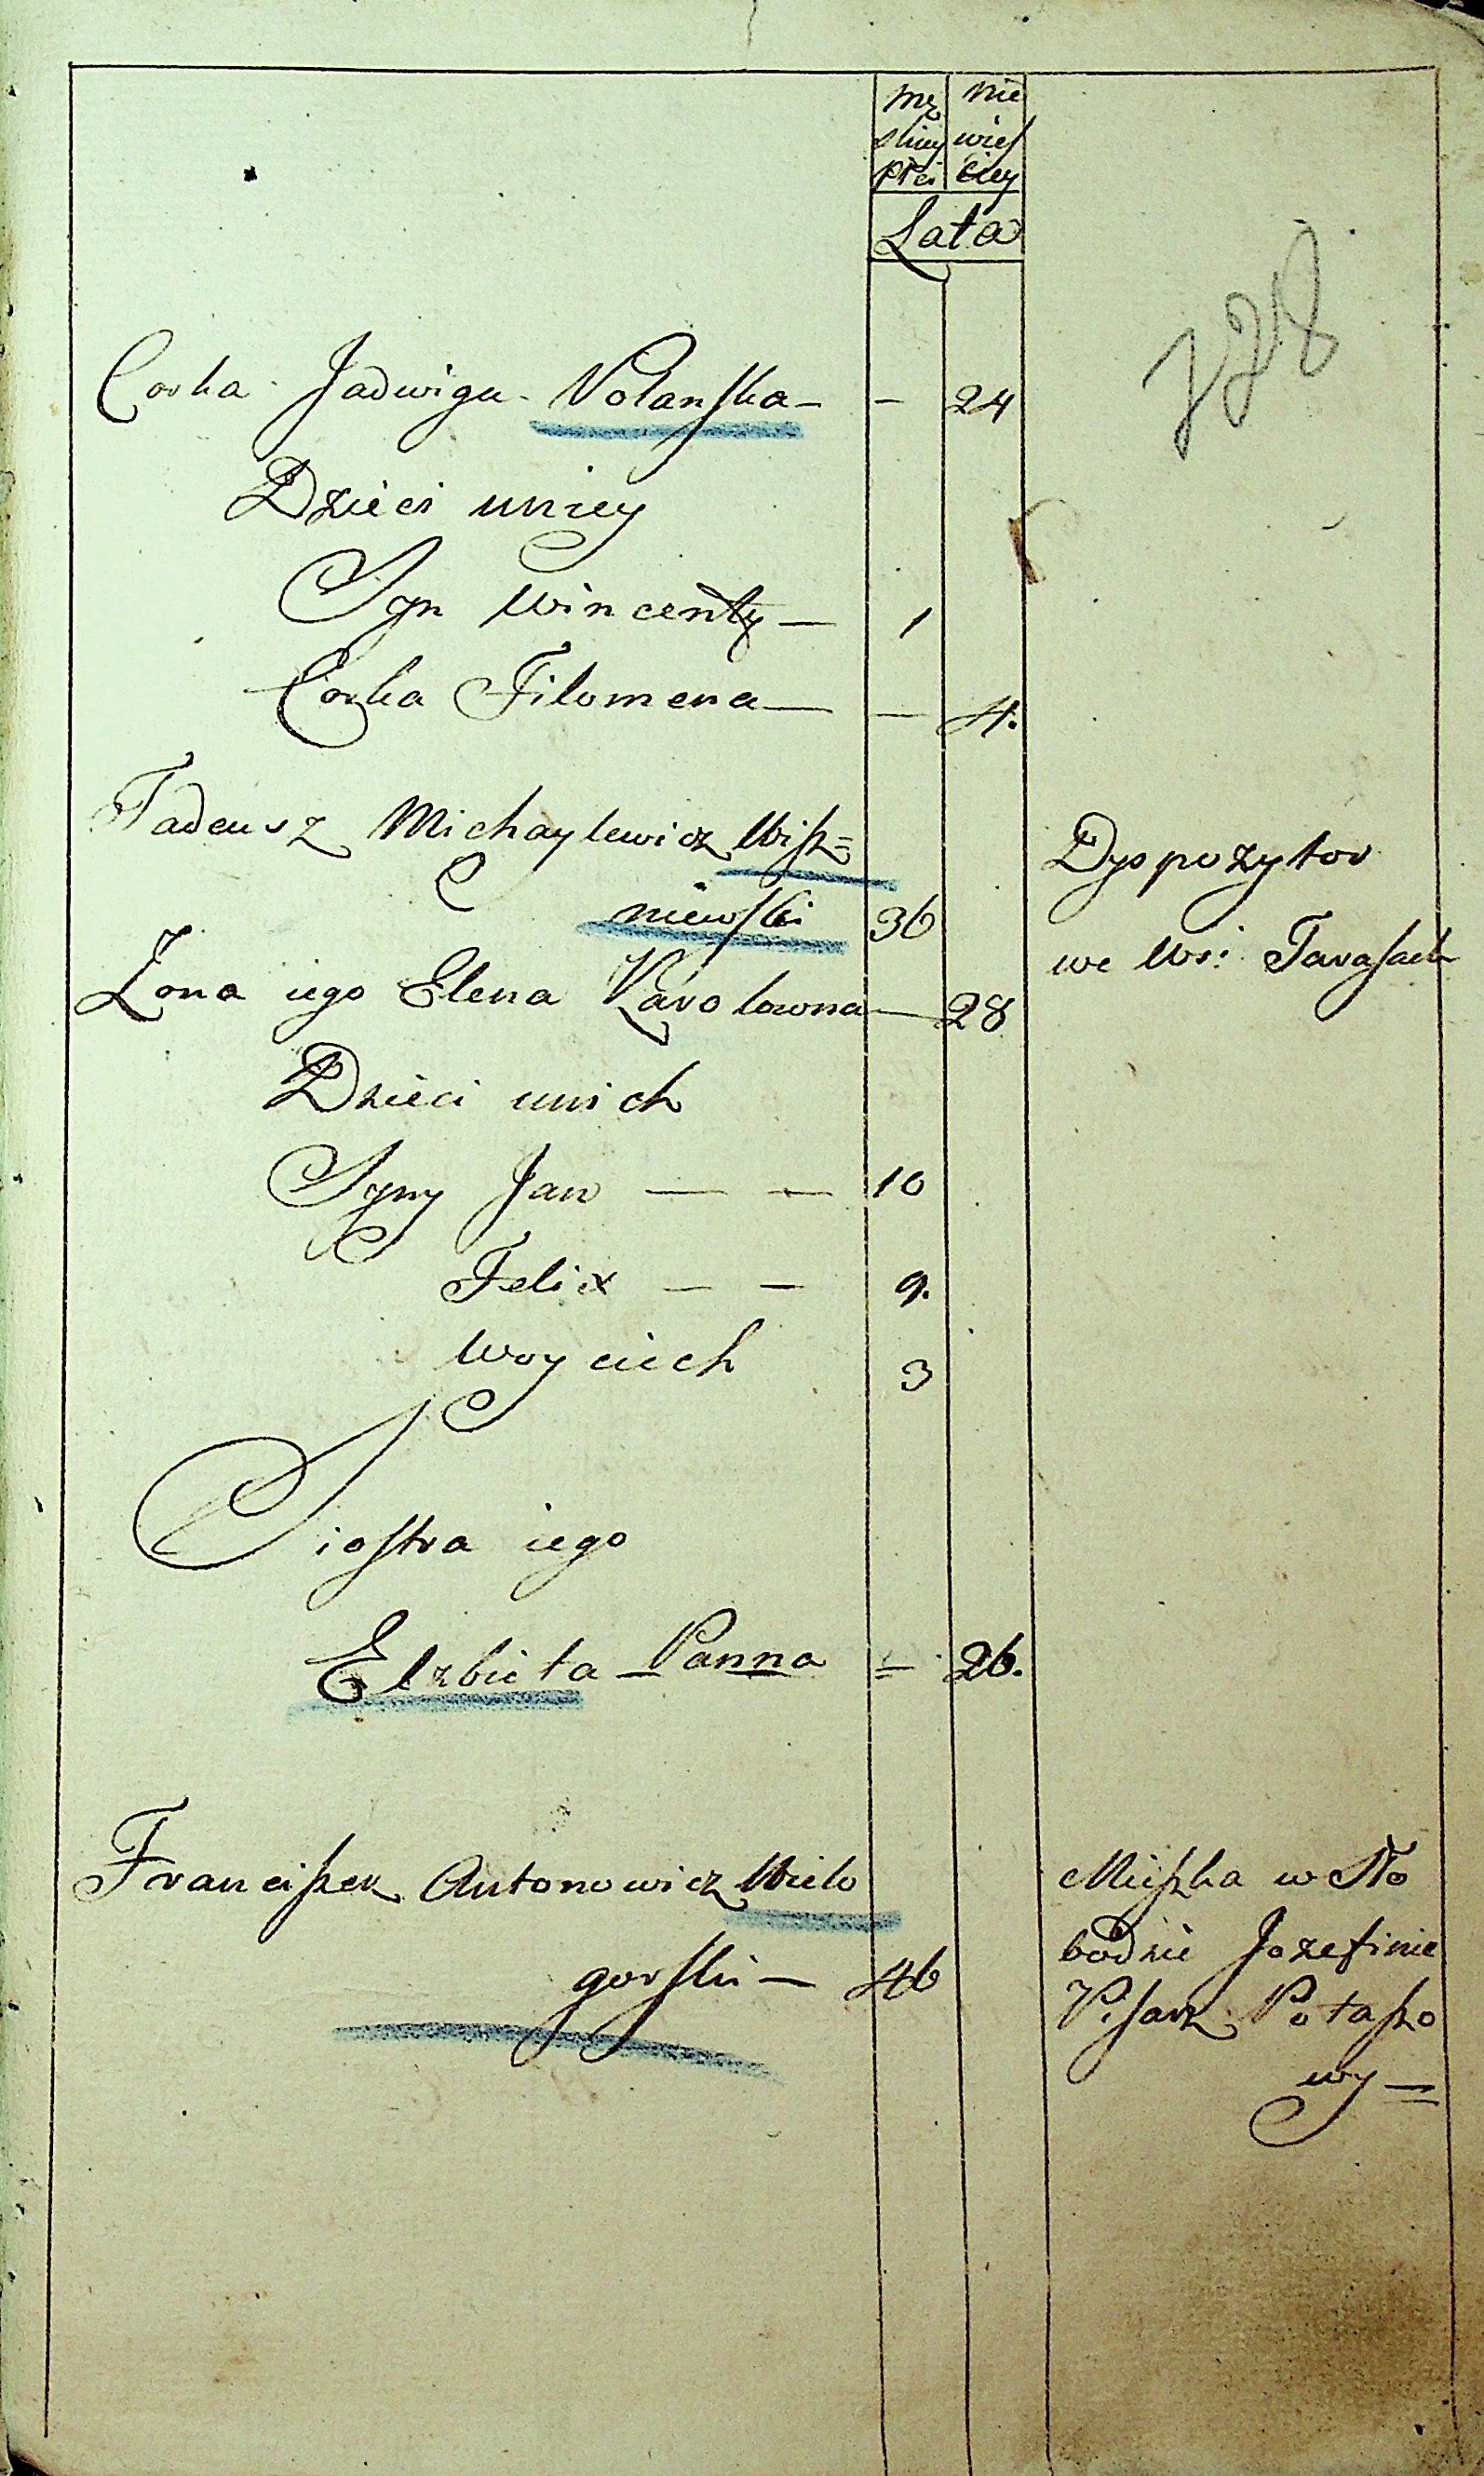 mę nie
skiey wies
płci ciey
Lata
778
Corka Jadwiga Wolanska — — 24
Dzieci uniey
Syn Wincenty — 1
Corka Filomena — — 4.
Tadeusz Michaylewicz Wisz=
niewski 36
Dyspozytor
we Wsi Tarasach
Zona iego Elena Karolowna — 28
Dzieci unich
Syny Jan — — 10
Felix — — 9.
Woyciech 3
Siostra iego
Elzbieta Panna = 26.
Franciszek Antonowicz Wielo
gorski — 46
Mieszka w Sło
bodzie Jozefinie
Pisarz Potaszo
wy =